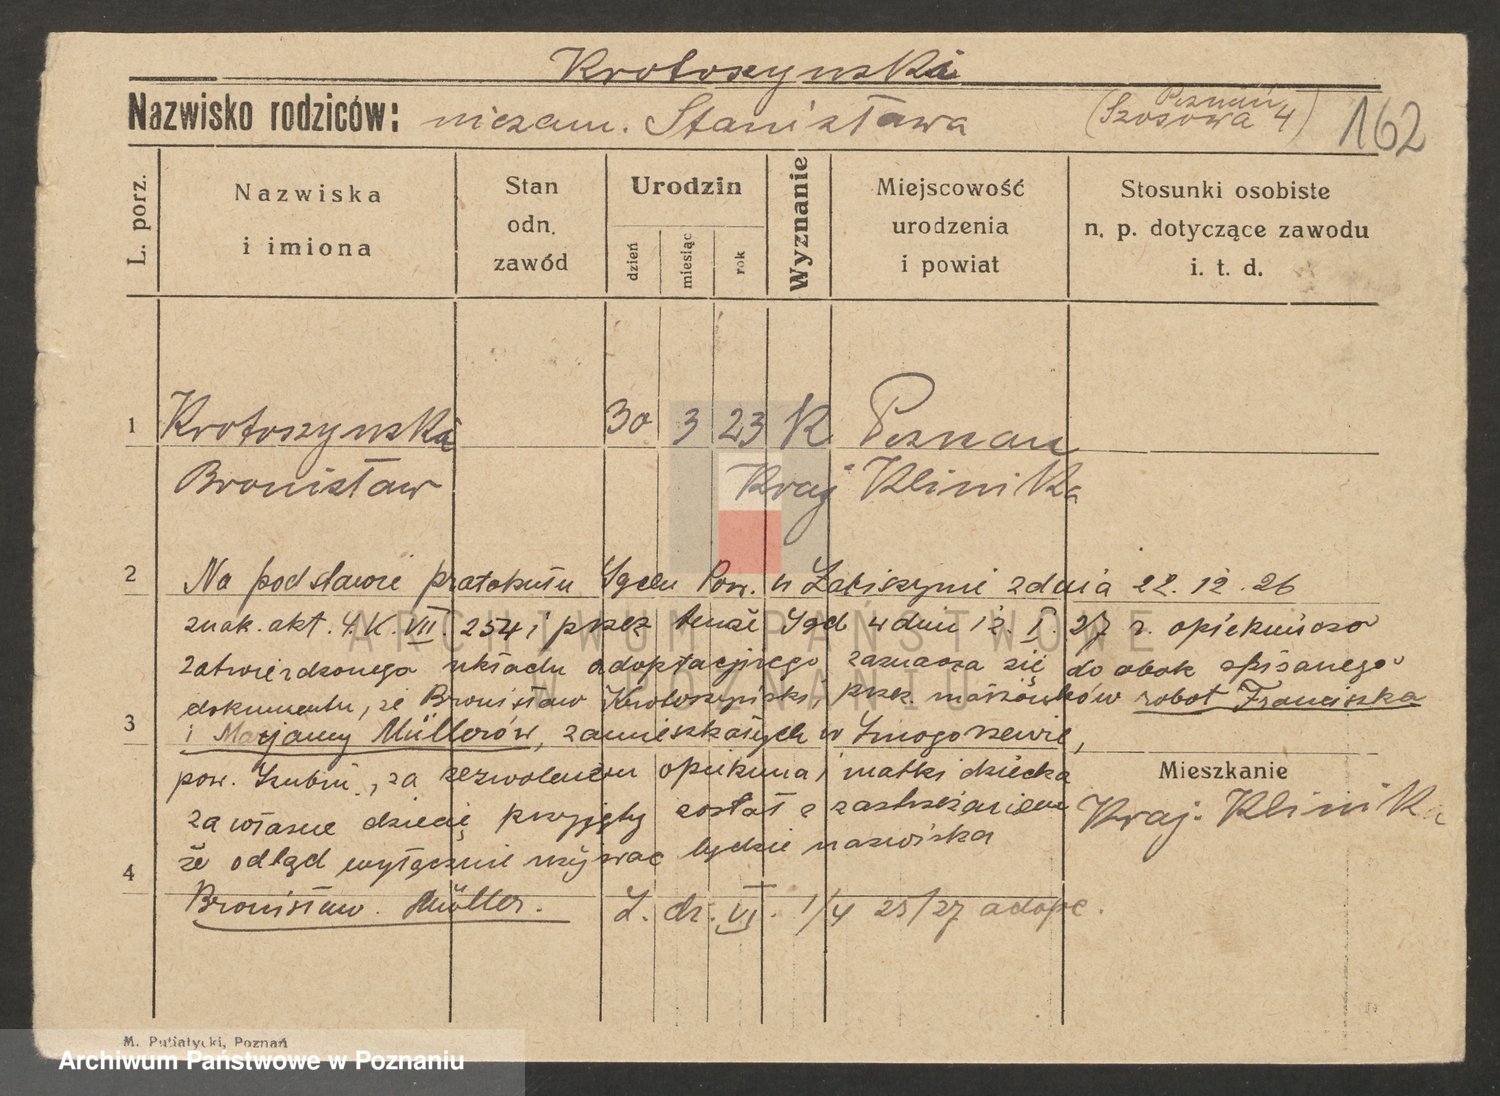 Krotoszynska
Nazwisko rodziców: niezam. Stanisława
Poznań
(Szosowa 4)
162
L. porz.
Nazwiska
i imiona
Stan
odn.
zawód
Urodzin
dzień
miesiąc
rok
Wyznanie
Miejscowość
urodzenia
i powiat
Stosunki osobiste
n. p. dotyczące zawodu
i. t. d.
1 Krotoszynska 30 3 23 K Poznan
Bronisław Kraj Klinika
2 Na podstawie protokułu Sądu Pow. w Łabiszynie z dnia 22.12.26
znak. akt. 4.K.VII. 254 i przez tenże Sąd 4 dnia 12.I.27 r. opiekuńczo
zatwierdzonego układu adoptacyjnego zaznacza się do obok spisanego
dokumentu, że Bronisław Krotoszyński, przez małżonków robot Franciszka
3 i Marjanny Müllerów, zamieszkałych w Smogorzewie,
pow. Szubin, za zezwoleniem opiekuna i matki dziecka
za własne dziecię przyjęty został z zastrzeżeniem
że odtąd wyłącznie używać będzie nazwiska
4 Bronisław Müller. L. dz. VI. 1/4 25/27 adopc.
Mieszkanie
Kraj. Klinika
M. Putiatycki, Poznań
ARCHIWUM PAŃSTWOWE
W POZNANIU
Archiwum Państwowe w Poznaniu